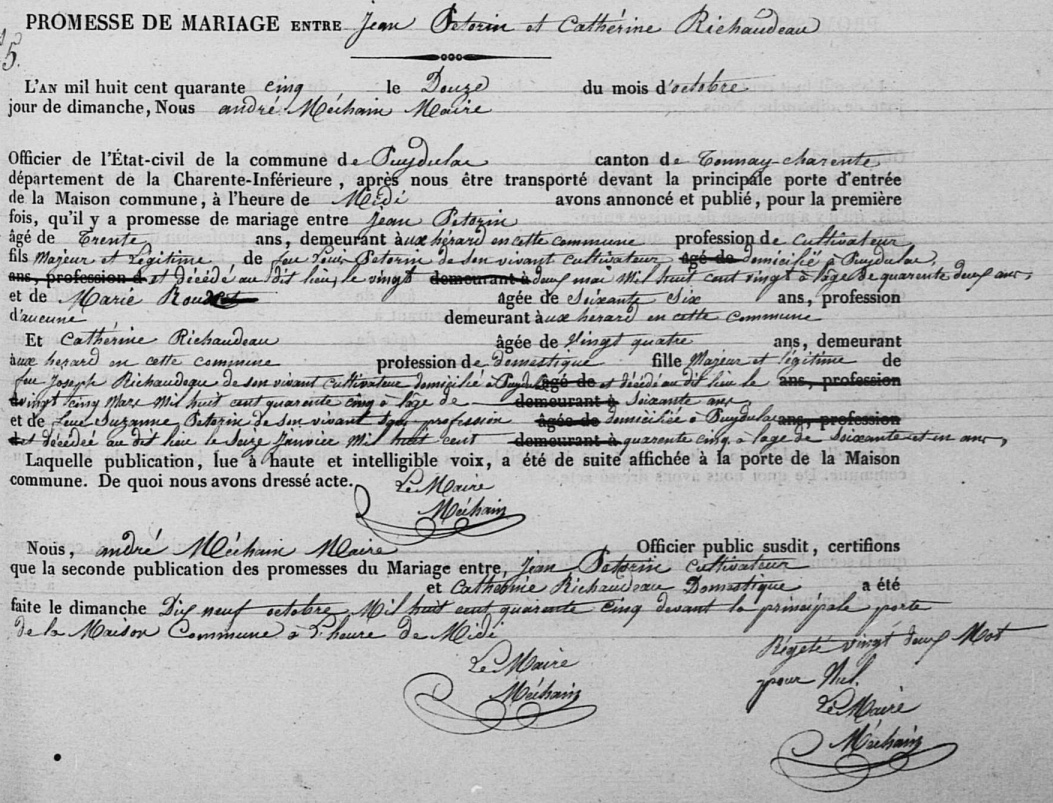 PROMESSE DE MARIAGE ENTRE Jean Petorin et Cathérine Richaudeau
5
L'AN mil huit cent quarante cinq le Douze du mois d'octobre
jour de dimanche, Nous andré Méchain Maire
Officier de l'État-civil de la commune de Puydulac canton de Tonnay-charente
département de la Charente-Inférieure, après nous être transporté devant la principale porte d'entrée
de la Maison commune, à l'heure de Midi avons annoncé et publié, pour la première
fois, qu'il y a promesse de mariage entre jean Petorin
âgé de Trente ans, demeurant àux hérard en cette commune profession de cultivateur
fils Majeur et Légitime de feu Petorin de son vivant cultivateur âgé de domicilié à Puydulac,
ans, profession d et décédé au dit lieu, le vingt demeurant à deux mai Mil huit cent vingt à lage de quarente deux ans,
et de Marie âgée de Soixante Six ans, profession
d'aucune demeurant àux herard en cette commune
Et Cathérine Richaudeau âgée de Vingt quatre ans, demeurant
àux herard en cette commune profession de domestique fille Majeur et légitime de
feu Joseph Richaudeau de son vivant Cultivateur domicilié à Puydulac âgé de et décédé au dit lieu le ans, profession
vingt cinq Mars Mil huit cent quarente cinq à lâge de demeurant à Soixante ans
et de feue Suzanne Petorin de son vivant profession âgée de domiciliée à Puydulac ans, profession
décédée au dit lieu le Seize Janvier Mil huit cent demeurant à quarente cinq à lage de Soixante et un ans,
Laquelle publication, lue à haute et intelligible voix, a été de suite affichée à la porte de la Maison
commune. De quoi nous avons dressé acte. Le Maire
Méchain
Nous, andré Méchain Maire Officier public susdit, certifions
que la seconde publication des promesses du Mariage entre, Jean Petorin cultivateur
et Cathérine Richaudeau Domestique a été
faite le dimanche Dix neuf octobre Mil huit cent quarente cinq devant la principale porte
de la Maison Commune à L'heure de Midi
Le Maire
Méchain
Régeté vingt deux Mot
pour Nul.
Le Maire
Méchain